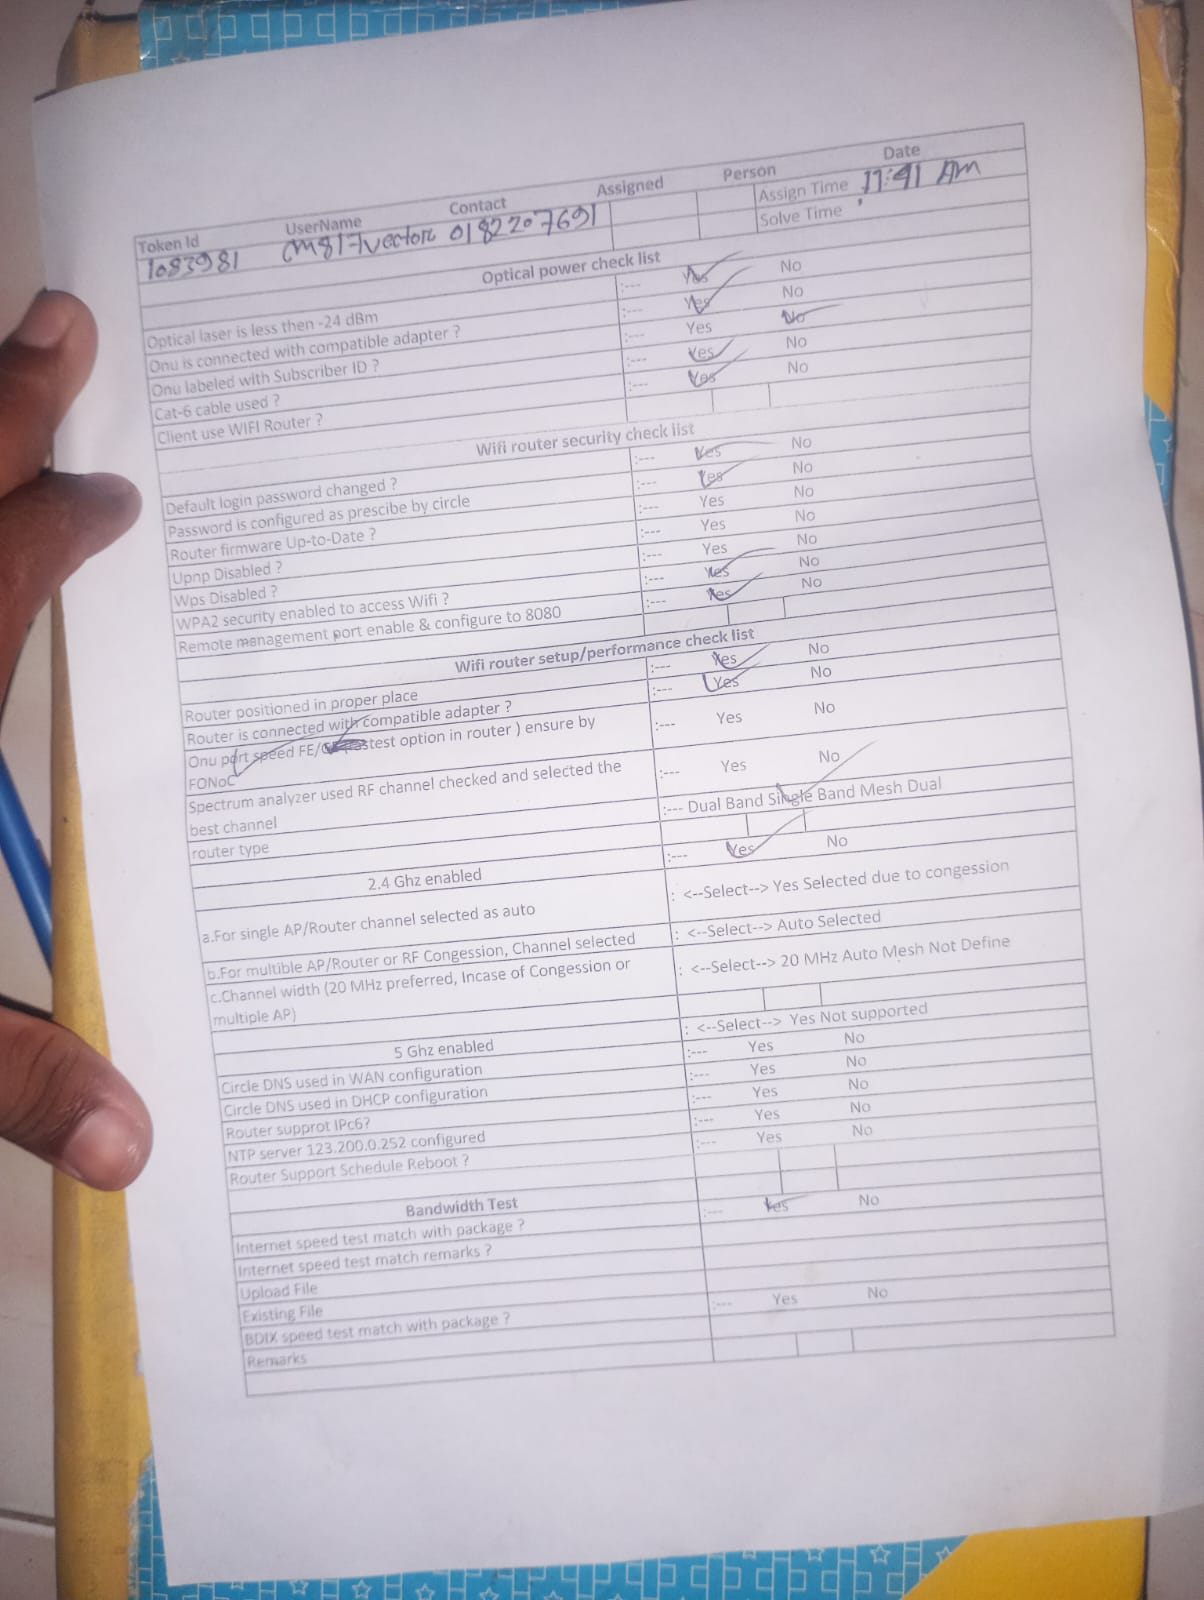 Token Id UserName Contact Assigned Person Date
1083981 cm817vectors 0182207691 Assign Time 11:41 AM
Solve Time
Optical power check list
Optical laser is less then -24 dBm :--- Yes No
Onu is connected with compatible adapter ? :--- Yes No
Onu labeled with Subscriber ID ? :--- Yes No
Cat-6 cable used ? :--- Yes No
Client use WIFI Router ? :--- Yes No
Wifi router security check list
Default login password changed ? :--- Yes No
Password is configured as prescibe by circle :--- Yes No
Router firmware Up-to-Date ? :--- Yes No
Upnp Disabled ? :--- Yes No
Wps Disabled ? :--- Yes No
WPA2 security enabled to access Wifi ? :--- Yes No
Remote management port enable & configure to 8080 :--- Yes No
Wifi router setup/performance check list
Router positioned in proper place :--- Yes No
Router is connected with compatible adapter ? :--- Yes No
Onu port speed FE/ option in router ) ensure by
FONoC :--- Yes No
Spectrum analyzer used RF channel checked and selected the
best channel :--- Yes No
router type :--- Dual Band Single Band Mesh Dual
2.4 Ghz enabled :--- Yes No
a.For single AP/Router channel selected as auto : <--Select--> Yes Selected due to congession
b.For multible AP/Router or RF Congession, Channel selected : <--Select--> Auto Selected
c.Channel width (20 MHz preferred, Incase of Congession or
multiple AP) : <--Select--> 20 MHz Auto Mesh Not Define
5 Ghz enabled : <--Select--> Yes Not supported
Circle DNS used in WAN configuration :--- Yes No
Circle DNS used in DHCP configuration :--- Yes No
Router supprot IPc6? :--- Yes No
NTP server 123.200.0.252 configured :--- Yes No
Router Support Schedule Reboot ? :--- Yes No
Bandwidth Test
Internet speed test match with package ? :--- Yes No
Internet speed test match remarks ?
Upload File
Existing File
BDIX speed test match with package ? :--- Yes No
Remarks